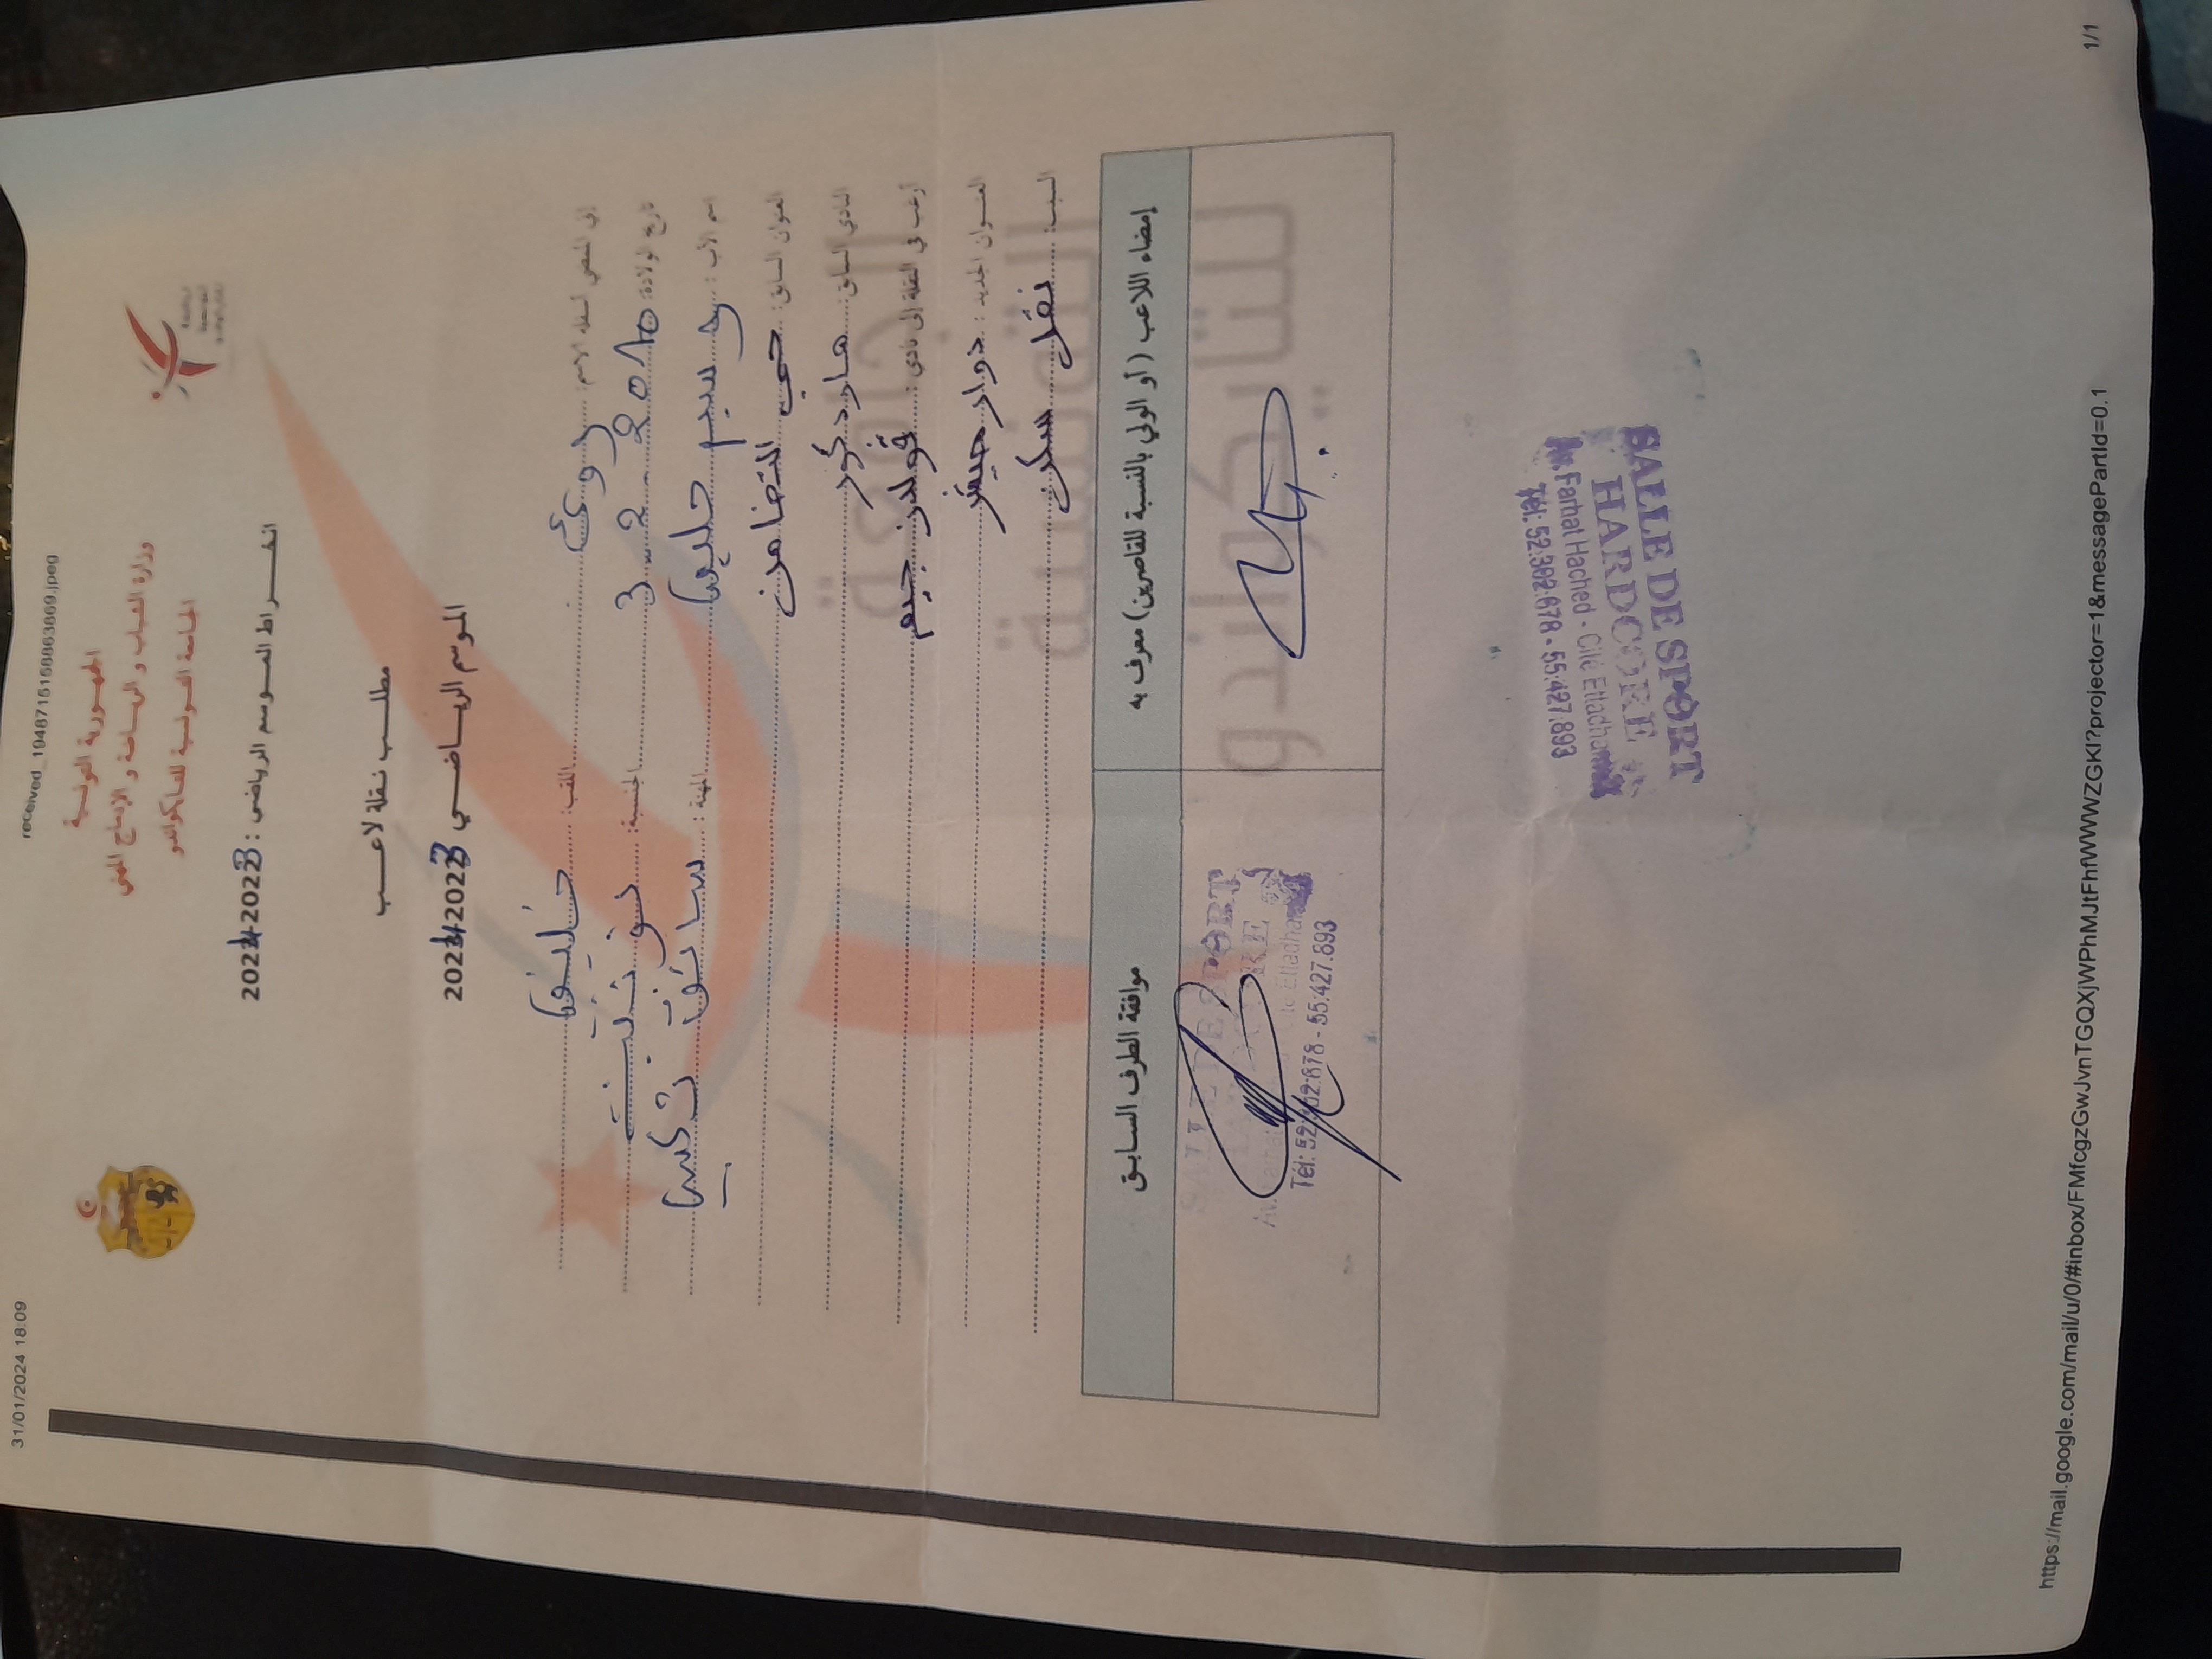 31/01/2024 18:09
received_1948715168863869.jpeg
الجمهورية التونسية
وزارة الشباب و الرياضة و الإدماج المهني
الجامعة التونسية للتايكواندو
انخراط الموسم الرياضي : 2023 2024
مطلب نقلة لاعب
الموسم الرياضي 2023 2024
إني الممضي أسفله الاسم: رؤى اللقب:
تاريخ الولادة: 3 - 2 - 2010 الجنسية: تونسية
اسم الأب : وسيم المهنة : سائق تاكسي
العنوان السابق: حي التضامن
النادي السابق: هارد كور
أرغب في النقلة إلى نادي : قولدن جيم
العنوان الجديد : دوار
السبب: نقل سكن
إمضاء اللاعب ( أو الولي بالنسبة للقاصرين) معرف به
موافقة الطرف السابق
SALLE DE SPORT
Tél: 52.302.678 - 55.427.893
SALLE DE SPORT
HARDCORE
Av. Farhat Hached - Cité Ettadhamen
Tél: 52.302.678 - 55.427.893
الجامعة
التونسية
للتايكواندو
https://mail.google.com/mail/u/0/#inbox/FMfcgzGwJvnTGQXjWPhMJtFhfWWWZGKl?projector=1&messagePartId=0.1
1/1